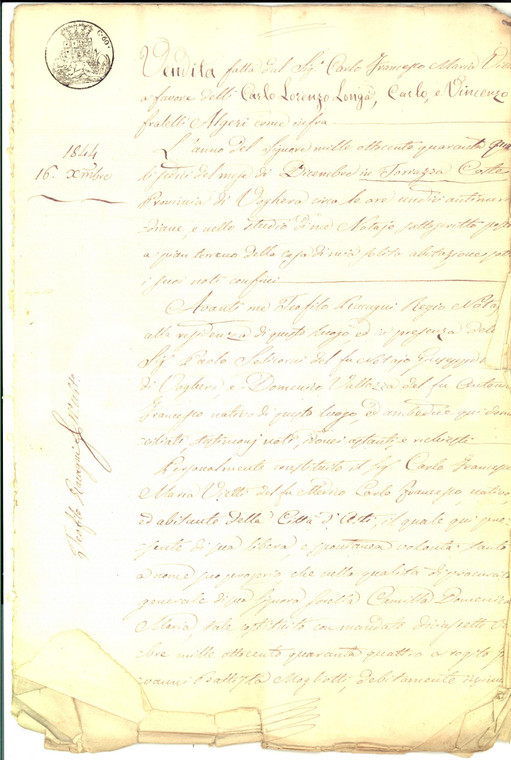 Vendita fatta dal Sig.r Carlo Francesco Maria
a favore delli Carlo Lorenzo Longa, Carlo, e Vincenzo
fratelli Algeri come infra
1844
16. Xmbre
L'anno del Signore mille ottocento quaranta
li sedici del mese di Dicembre in Torrazza Coste
Provincia di Voghera circa le ore undici antimeri
diane, e nello studio di me Notajo sottoscritto posto
a pian terreno della casa di mia solita abitazione sotto
i suoi noti confini
Avanti me Teofilo Racagni Regio Notajo
alla residenza di questo luogo, ed in presenza delli
Sig.r Paolo del fu Notajo Giuseppe
di Voghera, e Domenico Vallozza del fu Antonio
Francesco nativo di questo luogo, ed ambedue qui
testimonj noti, idonei astanti e richiesti
Personalmente constituito il Sig.r Carlo Francesco
Maria Vietti del fu Medico Carlo Francesco, nativo,
ed abitante della Città d'Asti, il quale qui pre
sente di sua libera e spontanea volontà tanto
a nome suo proprio che nella qualità di procurato
generale di sua Signora sorella Camilla Domenica
Maria tale costituito con mandato
bre mille ottocento quaranta quattro a rogito
Battista debitamente
Teofilo Racagni